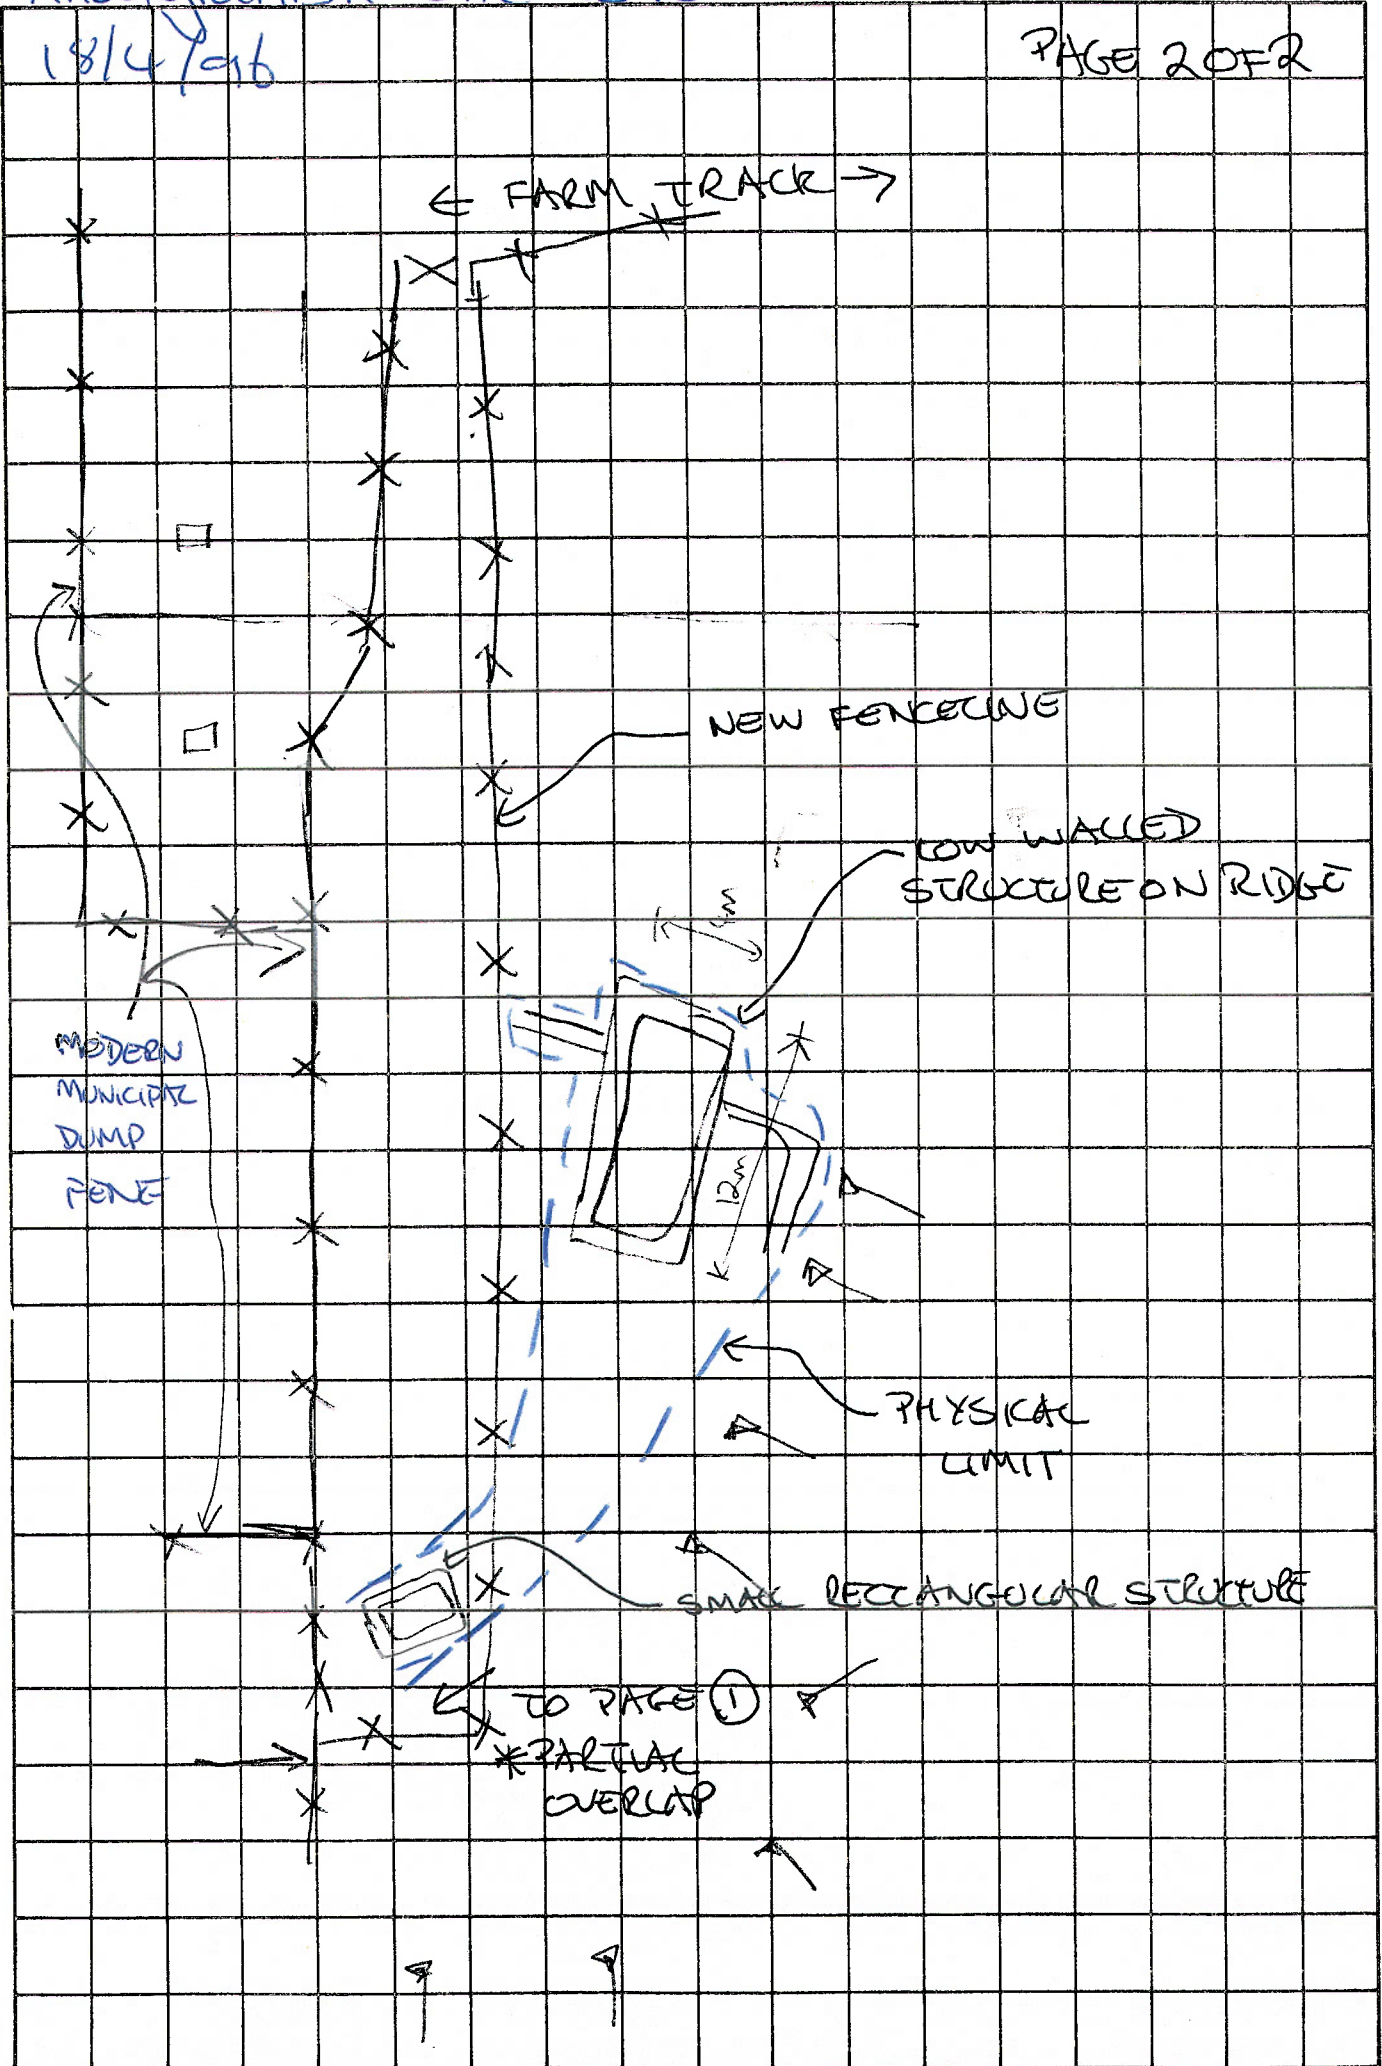 18/4/96
PAGE 2 OF 2
← FARM TRACK →
NEW FENCELINE
LOW WALLED
STRUCTURE ON RIDGE
4m
12m
MODERN
MUNICIPAL
DUMP
FENE
PHYSICAL
LIMIT
SMALL RECTANGULAR STRUCTURE
TO PAGE ①
*PARTIAL
OVERLAP